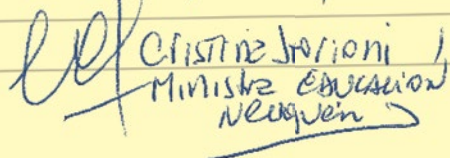 Cristina Storioni
Ministra Educación
Neuquén